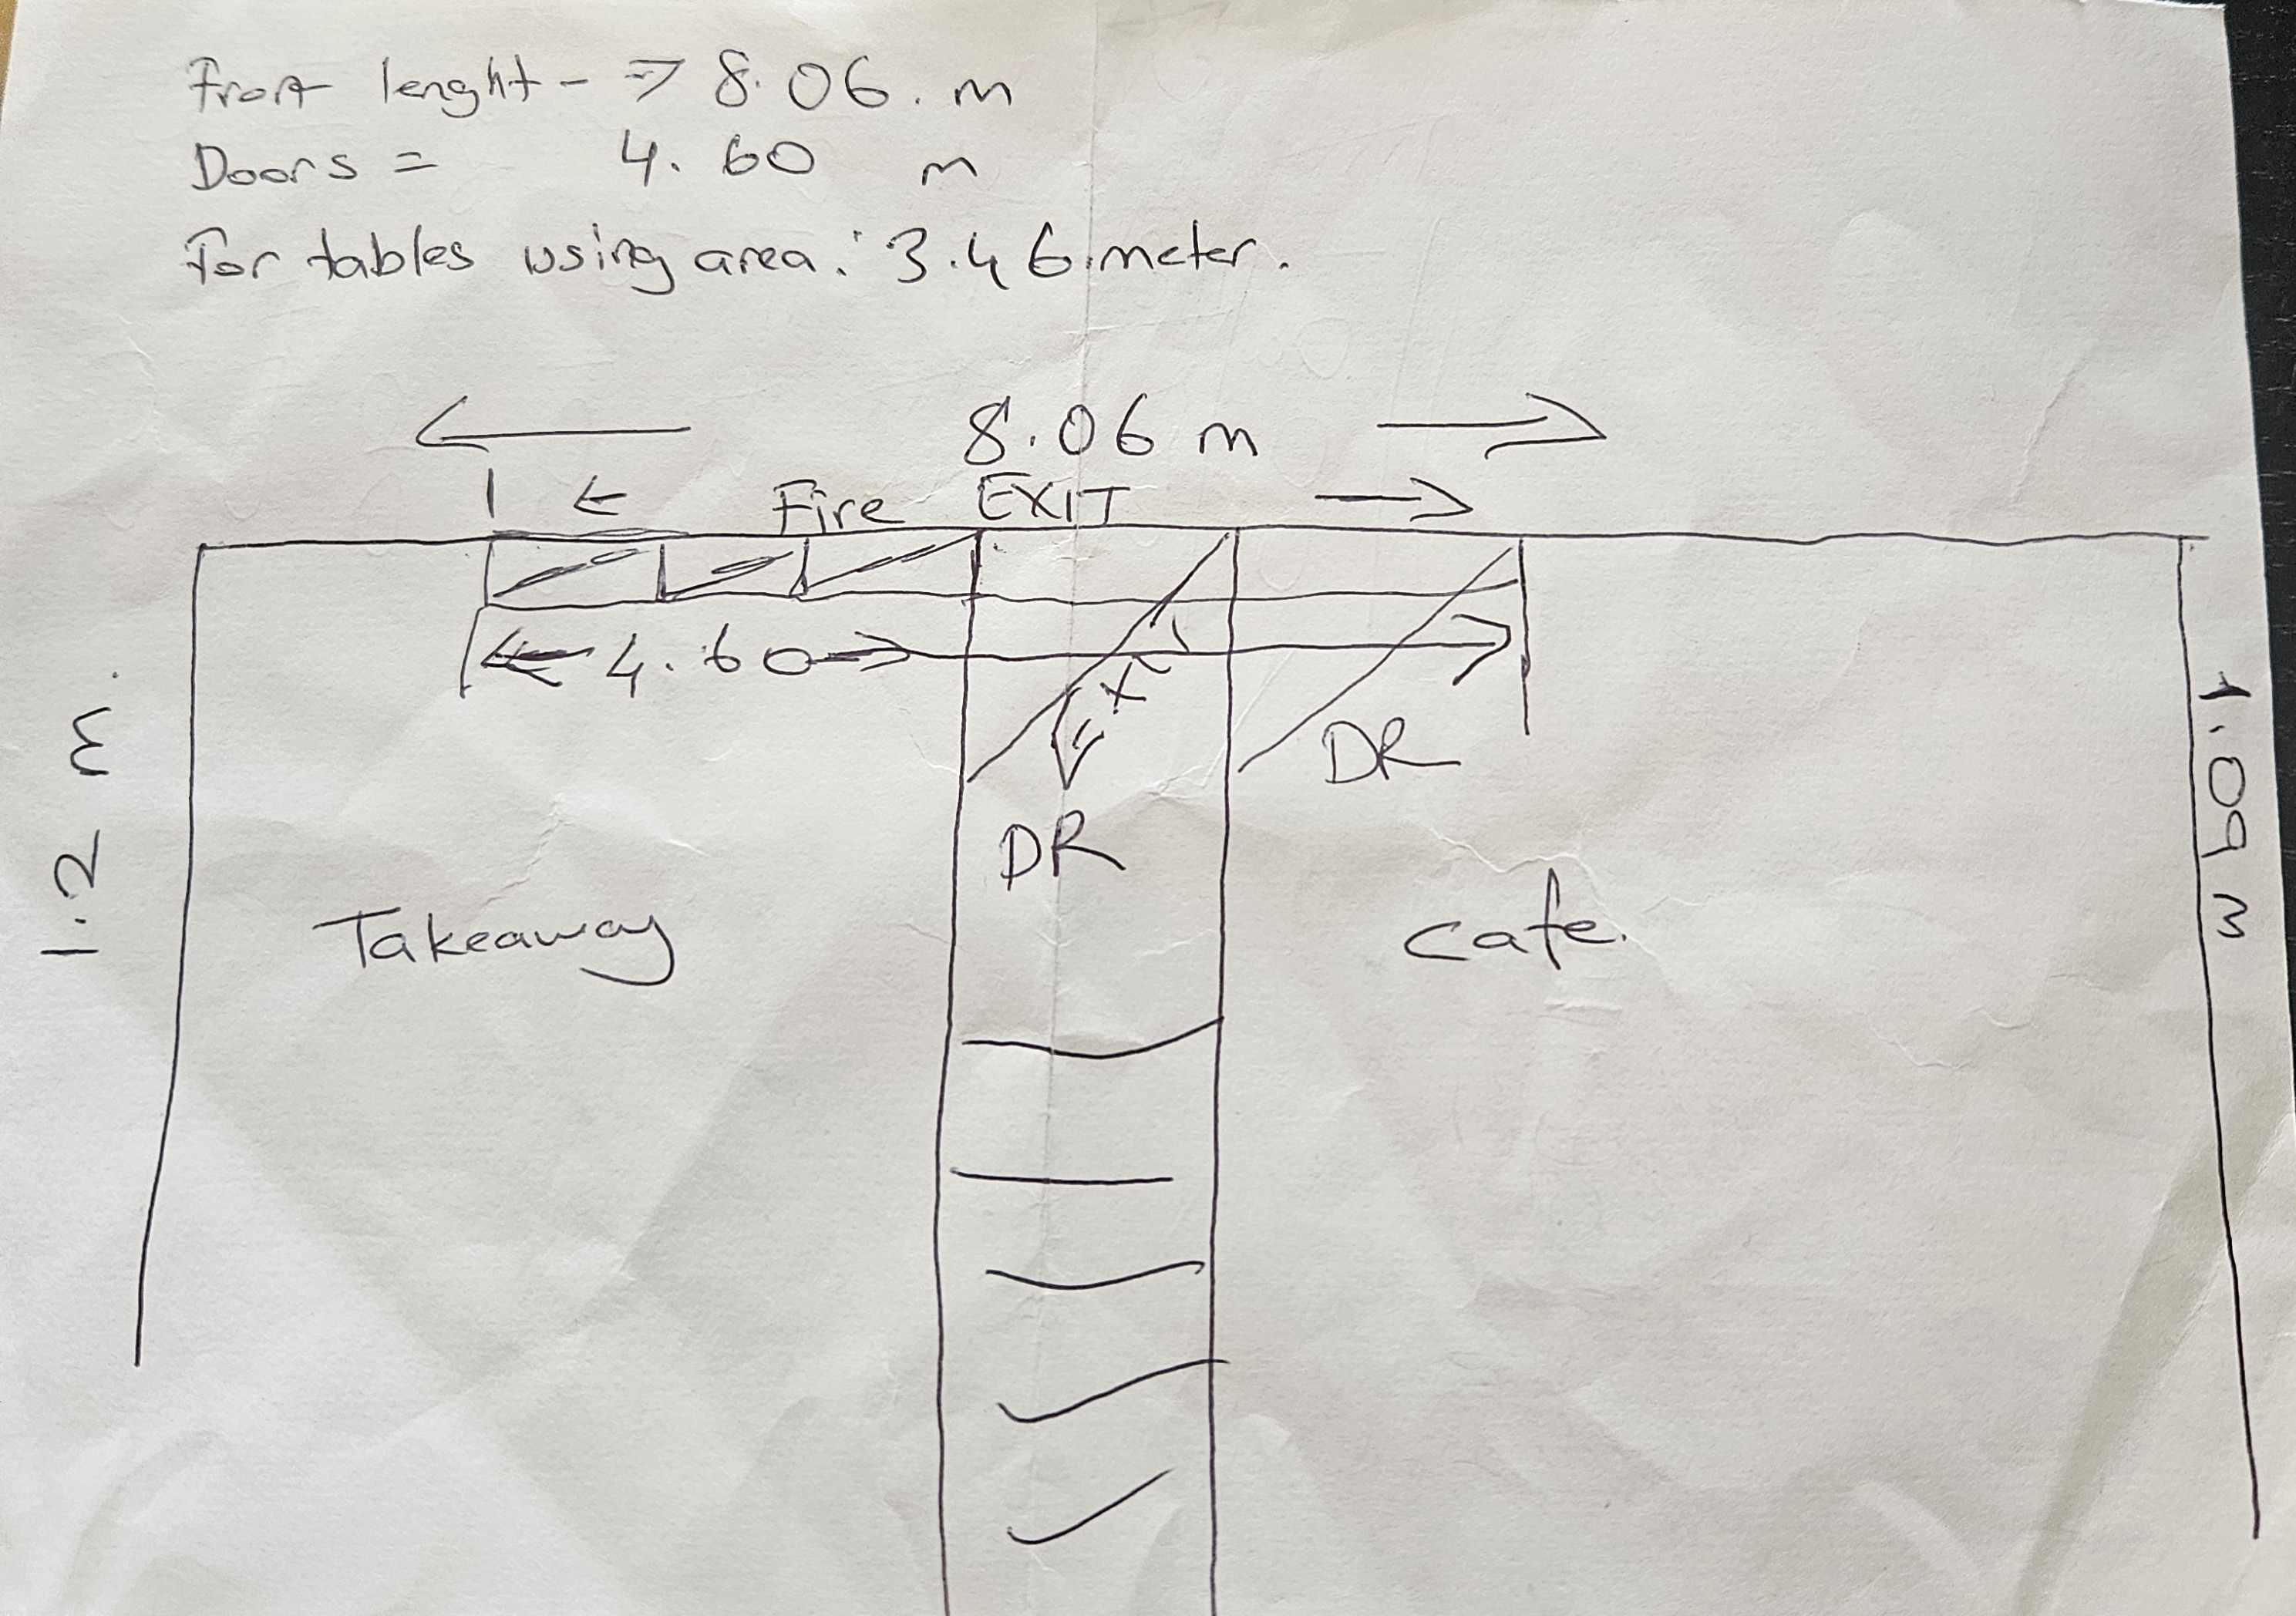 Front lenght - => 8.06. m
Doors = 4. 60 m
For tables using area: 3.46.meter.
8.06 m
Fire EXIT
4.60
DR
DR
1.2 m.
1.09 m
Takeaway
cafe.